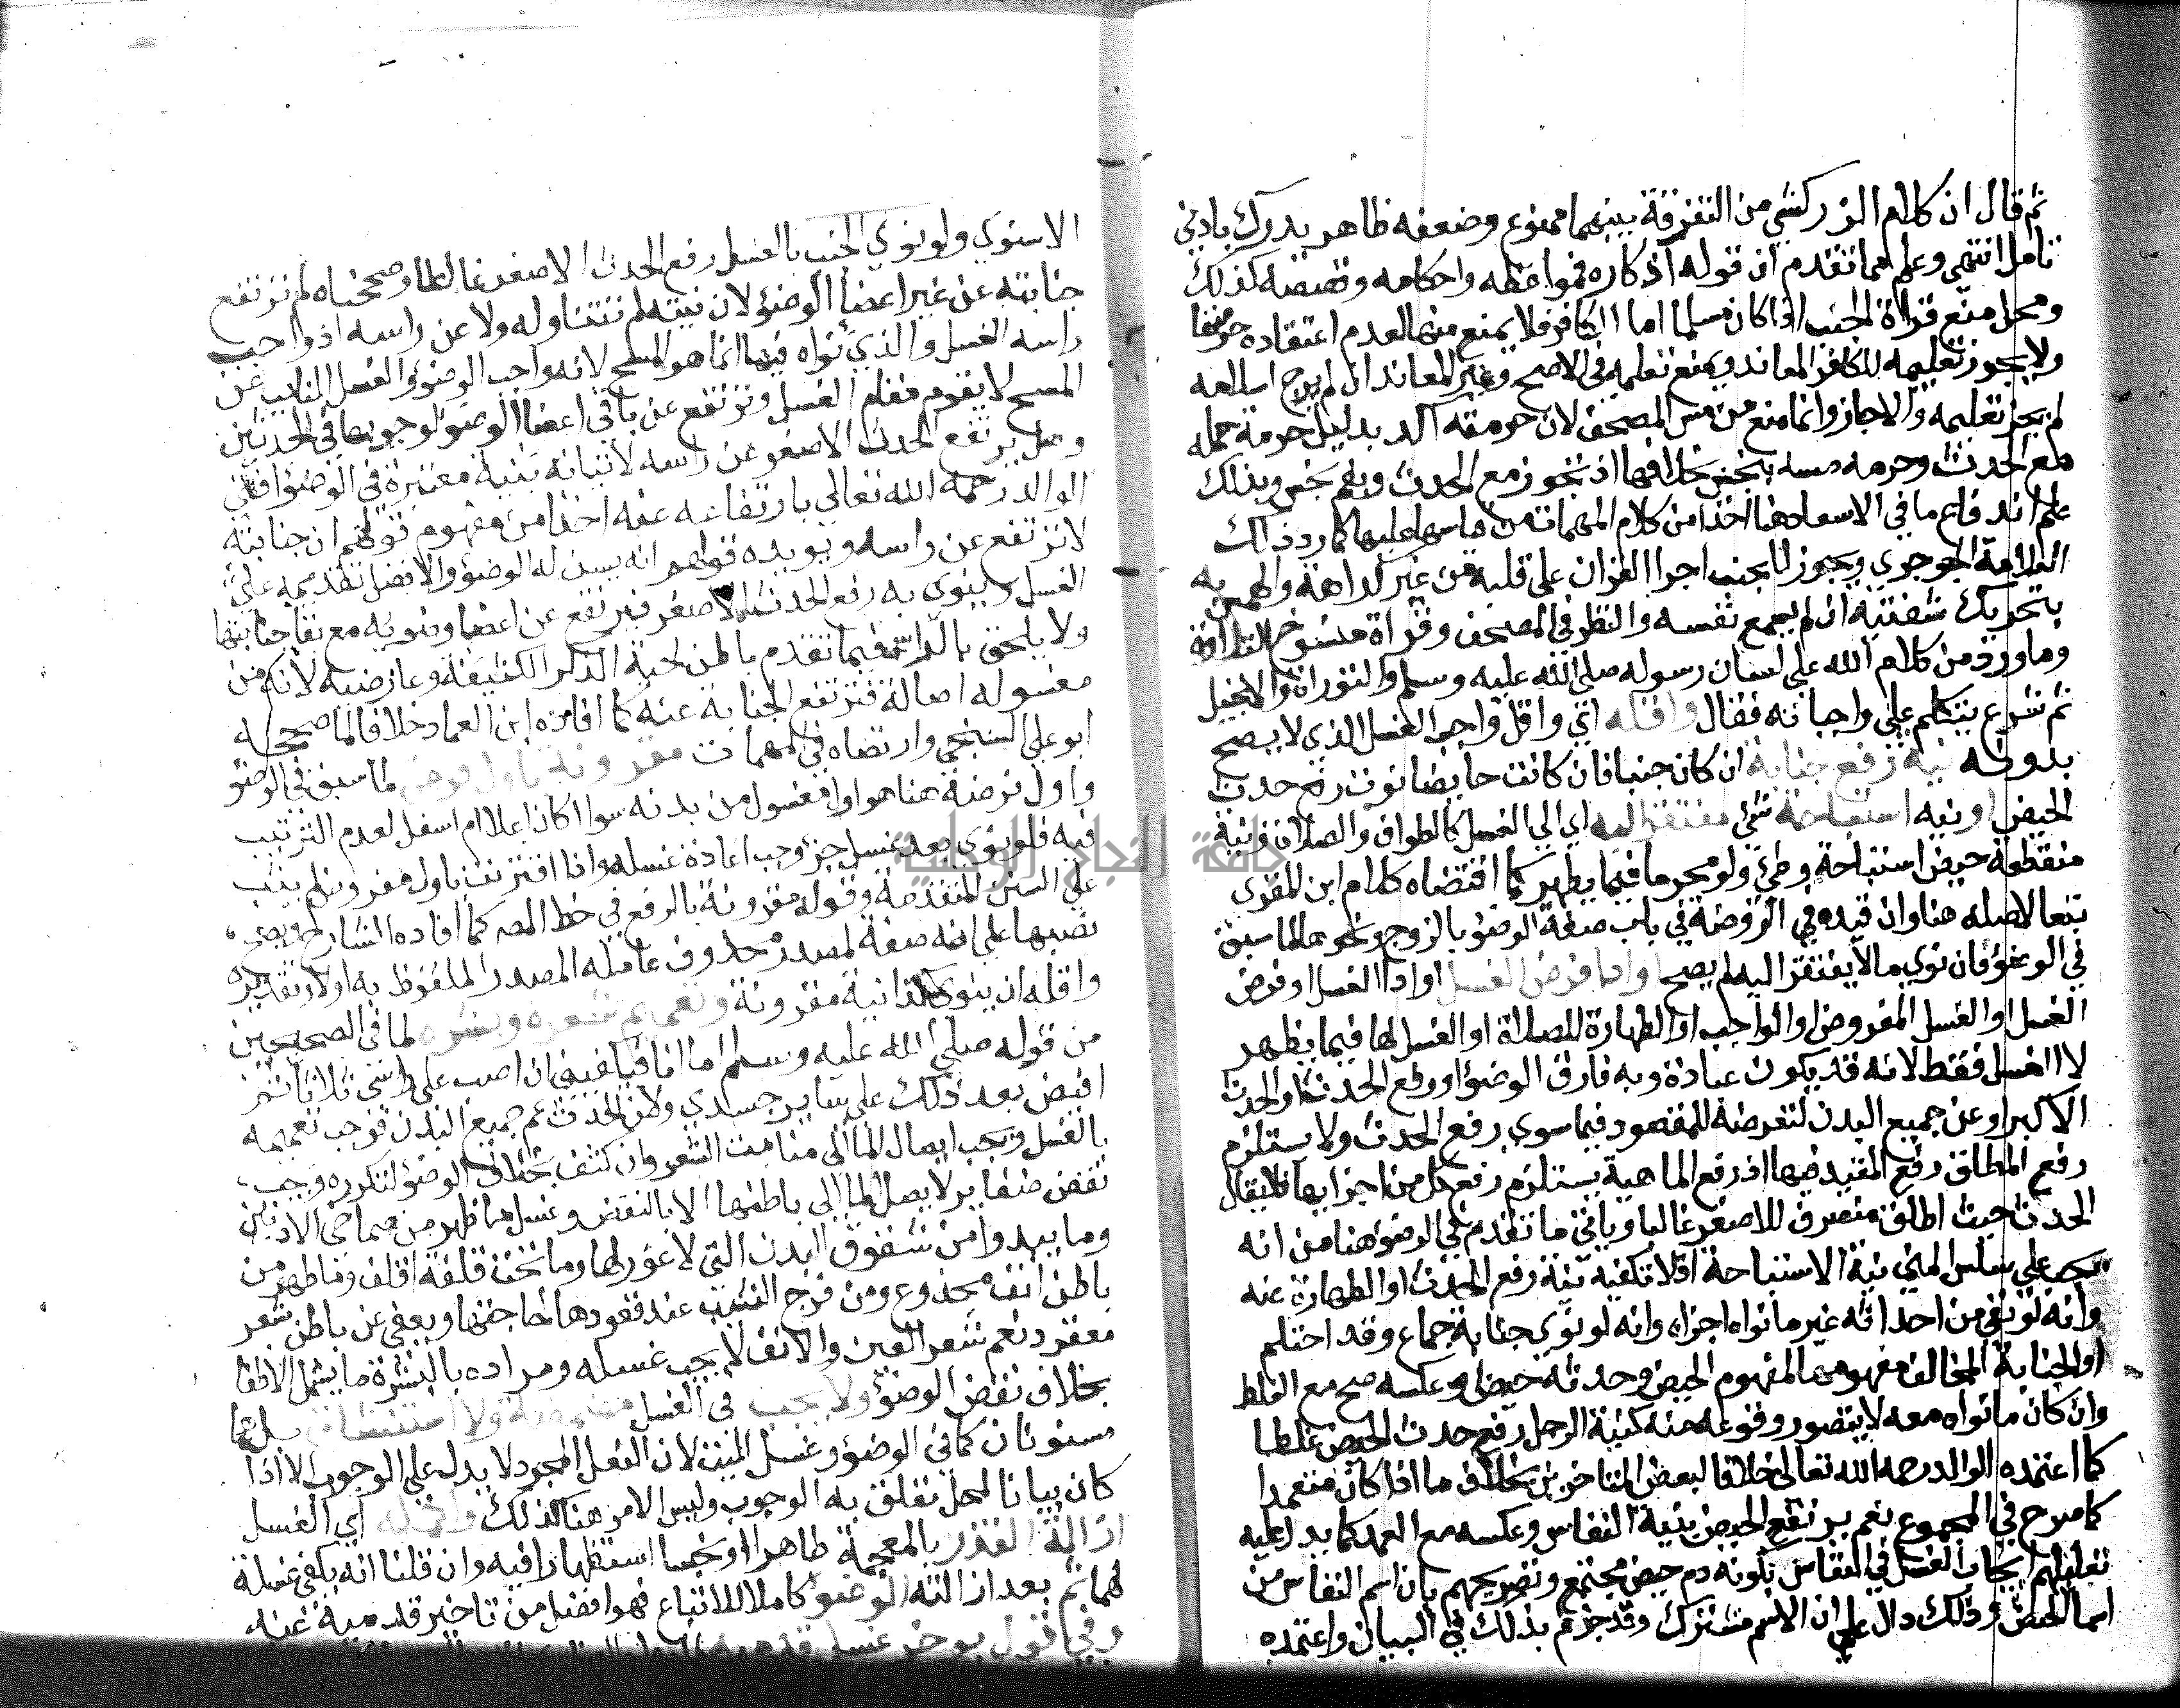 ثم قال ان كلام الزركشي من التفرقة بينهما ممنوع وضعفه ظاهر يدرك بادني
تامل انتهي وعلم مما تقدم ان قوله اذكاره فمواعظه واحكامه وقصصه كذلك
ومحل منع قراة الجنب اذا كان مسلما اما الكافر فلا يمنع منها لعدم اعتقاده حرمتها
ولا يجوز تعليمه للكافر المعاند ويمنع تعلمه في الاصح وغير المعاند ان لم يرج اسلامه
لم يجز تعليمه والا جاز وانما منع من مس المصحف لان حرمته اكد بدليل حرمة حمله
مع الحدث وحرمه مسه بنجس بخلافها اذ تجوز مع الحدث وبفم نجس وبذلك
علم اندفاع ما في الاسعاد هنا اخذا من كلام المهمات من ما سها عليها كما رد ذلك
العلامة الجوجري ويجوز للجنب اجرا القران علي قلبه من غير كراهة والهمس به
بتحريك شفتيه ان لم يسمع نفسه والنظر في المصحف وقراة منسوخ التلاوة
وما ورد من كلام الله علي لسان رسوله صلي الله عليه وسلم والتوراة والانجيل
ثم شرع يتكلم علي واجباته فقال واقله اي واقل واجب الغسل الذي لا يصح
بدونه نية رفع جنابة ان كان جنبا فان كانت حايضا نوت رفع حدث
الحيض او نيه استباحة شي مفتقر اليه اي الي الغسل كالطواف والصلاة فنية
منقطعة حيض استباحة وطي ولو محرما فيما يظهر كما اقتضاه كلام ابن المقري
تبعا لاصله هنا وان قيده في الروضة في باب صفة الوضو بالزوج ونحوه لما سبق
في الوضو فان نوي ما لا يفتقر اليه لم يصح او ادا فرض الغسل او ادا الغسل او فرض
الغسل او الغسل المفروض او الواجب او الطهارة للصلاة او الغسل لها فيما يظهر
لا الغسل فقط لانه قد يكون عادة وبه فارق الوضو او رفع الحدث او الحدث
الاكبر او عن جميع البدن لتعرضه للمقصود فيما سوي رفع الحدث ولا ستلزم
رفع المطلق رفع المقيد فيها اذ رفع الماهية يستلزم رفع كل من اجزايها فلا يقال
الحدث حيث اطلق منصرف للاصغر غالبا وياتي ما تقدم في الوضو هنا من انه
يجب علي سلس المني نية الاستباحة اذ لا تكفيه نية رفع الحدث او الطهارة عنه
وانه لو نفي من احداثه غير ما نواه اجزاه وانه لو نوي جنابة جماع وقد احتلم
او الجنابة المخالف مفهومها لمفهوم الحيض وحدثه حيض او عكسه صح مع الغلط
وان كان ما نواه معه لا يتصور وقوعه منه كنية الرجل رفع حدث الحيض غلطا
كما اعتمده الوالد رحمه الله تعالي خلافا لبعض المتاخرين بخلاف ما اذا كان متعمدا
كما صرح في المجموع نعم يرتفع الحيض بنية النفاس وعكسه مع العمد كما يدل عليه
تعليلهم ايجاب الغسل في النفاس بكونه دم حيض مجتمع وتصريحهم بان اسم النفاس من
اسما الحيض وذلك دال علي ان الاسم مشترك وقد جزم بذلك في البيان واعتمده
الاسنوي ولو نوي الجنب بالغسل رفع الحدث الاصغر غالطا وصححناه لم ترتفع
جنابته عن غير اعضا الوضو لان نيته لم تتناوله ولا عن راسه اذ واجب
راسه الغسل والذي نواه فيها انما هو المسح لانه واجب الوضو والغسل النايب عن
المسح لا يقوم مقام الغسل وترتفع عن باقي اعضا الوضو لوجوبها في الحدثين
وهل يرتفع الحدث الاصغر عن راسه لاتيانه بنية معتبرة في الوضو افتي
الوالد رحمه الله تعالي بارتفاعه عنه اخذا من مفهوم قولهم ان جنابته
لا ترتفع عن راسه ويويده قولهم انه يسن له الوضو والافضل تقديمه علي
الغسل وينوي به رفع الحدث الاصغر فيرتفع عن اعضا وضويه مع بقا جنابتها
ولا يلحق بالراس فيما تقدم باطن لحية الذكر الكثيفة وعارضيه لانه من
مغسوله اصالة فترتفع الجنابة عنه كما افاده ابن العماد خلافا لما صححه
ابو علي السنجي وارتضاه في المهمات مقرونة باول فرض لما سبق في الوضو
واول فرضه هنا هو اول مغسول من بدنه سوا اكان اعلا ام اسفل لعدم الترتيب
فيه فلو نوي بعد غسل جزء وجب اعادة غسله واذا اقترنت باول مفروض لم يثب
علي السنن المتقدمة وقوله مقرونة بالرفع في خط المص كما افاده الشارح ويصح
نصبها علي انه صفة لمصدر محذوف عامله المصدر الملفوظ به اولا وتقديره
واقله ان ينوي كذا نية مقرونة وتعميم شعره وبشره لما في الصحيحين
من قوله صلي الله عليه وسلم اما انا فيكفيني ان اصب علي راسي ثلاثا ثم
افيض بعد ذلك علي ساير جسدي ولان الحدث عم جميع البدن فوجب تعميمه
بالغسل ويجب ايصال الما الي منابت الشعر وان كثف بخلاف الوضو لتكرره ويجب
نقض ضفاير لا يصل الما الي باطنها الا بالنقض وغسل ما ظهر من صماخي الاذنين
وما يبدوا من شقوق البدن التي لا غور لها وما تحت قلفة اقلف وما ظهر من
باطن انف مجدوع ومن فرج الثيب عند قعودها لحاجتها ويعفي عن باطن شعر
معقد نعم شعر العين والانف لا يجب غسله ومراده بالبشرة ما يشمل الاظفا
بخلاف نقض الوضو ولا يجب في الغسل مضمضة ولا استنشاق بل هما
مسنونان كما في الوضو وغسل الميت لان الفعل المجرد لا يدل علي الوجوب الا اذا
كان بيانا لمجمل تعلق به الوجوب وليس الامر هنا كذلك واكمله اي الغسل
ازالة القذر بالمعجمة طاهرا او نجسا استظهارا فيه وان قلنا انه يكفي غسلة
لهما ثم بعد ازالته الوضو كاملا للاتباع فهو افضل من تاخير قدميه عنه
وفي قول يوخر غسل قدميه
جامعة النجاح الوطنية